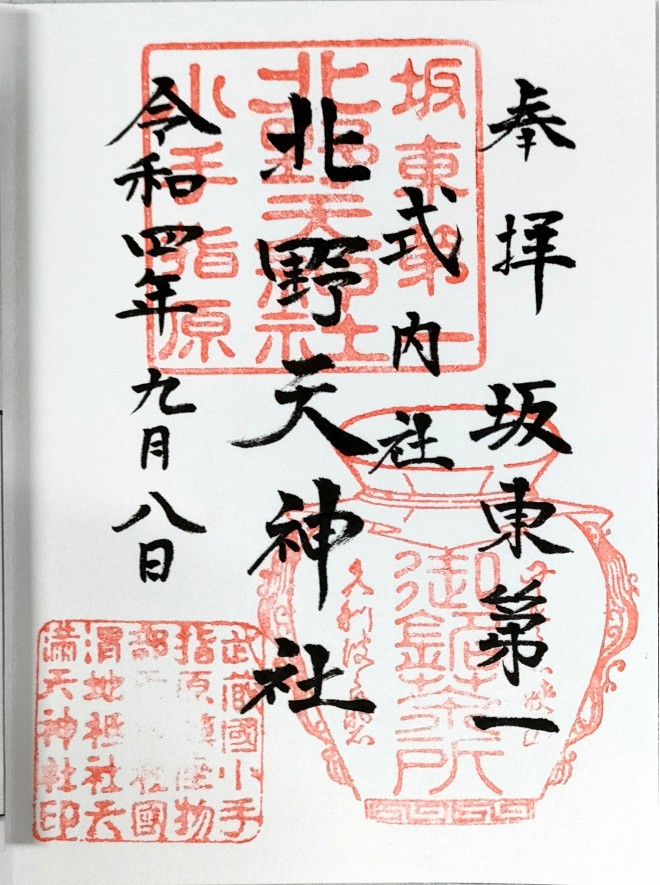 奉拝
坂東第一
式内社
北野天神社
令和四年九月八日
坂東第一
北野天神社
小手指原
武蔵國小手
指原
物
國
渭地祇社天
満天神社印